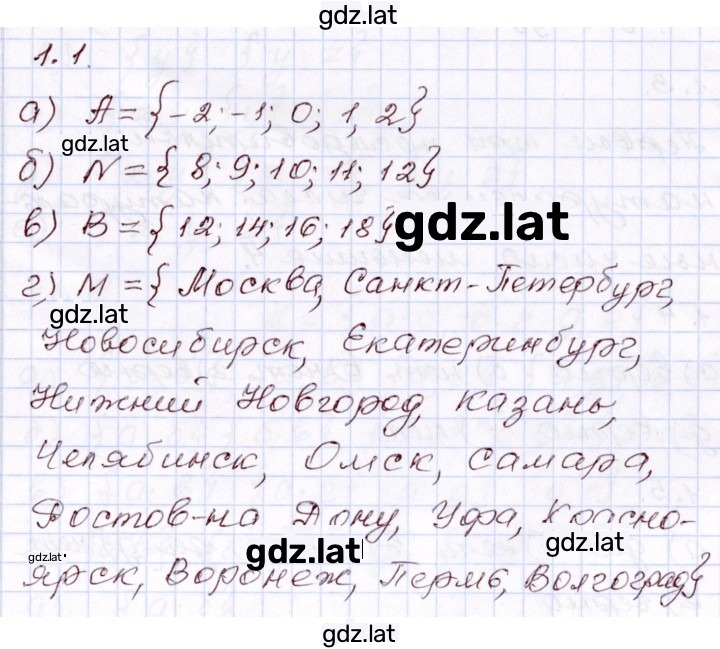 gdz.lat
1.1.
а) A = {-2; -1; 0; 1, 2}
gdz.lat
б) N = {8; 9; 10; 11; 12}
в) B = {12; 14; 16; 18}
gdz.lat
г) M = {Москва, Санкт-Петербург,
gdz.lat
Новосибирск, Екатеринбург,
Нижний Новгород, Казань,
Челябинск, Омск, Самара,
Ростов-на Дону, Уфа, Красно-
gdz.lat
gdz.lat
gdz.lat
ярск, Воронеж, Пермь, Волгоград}
gdz.lat